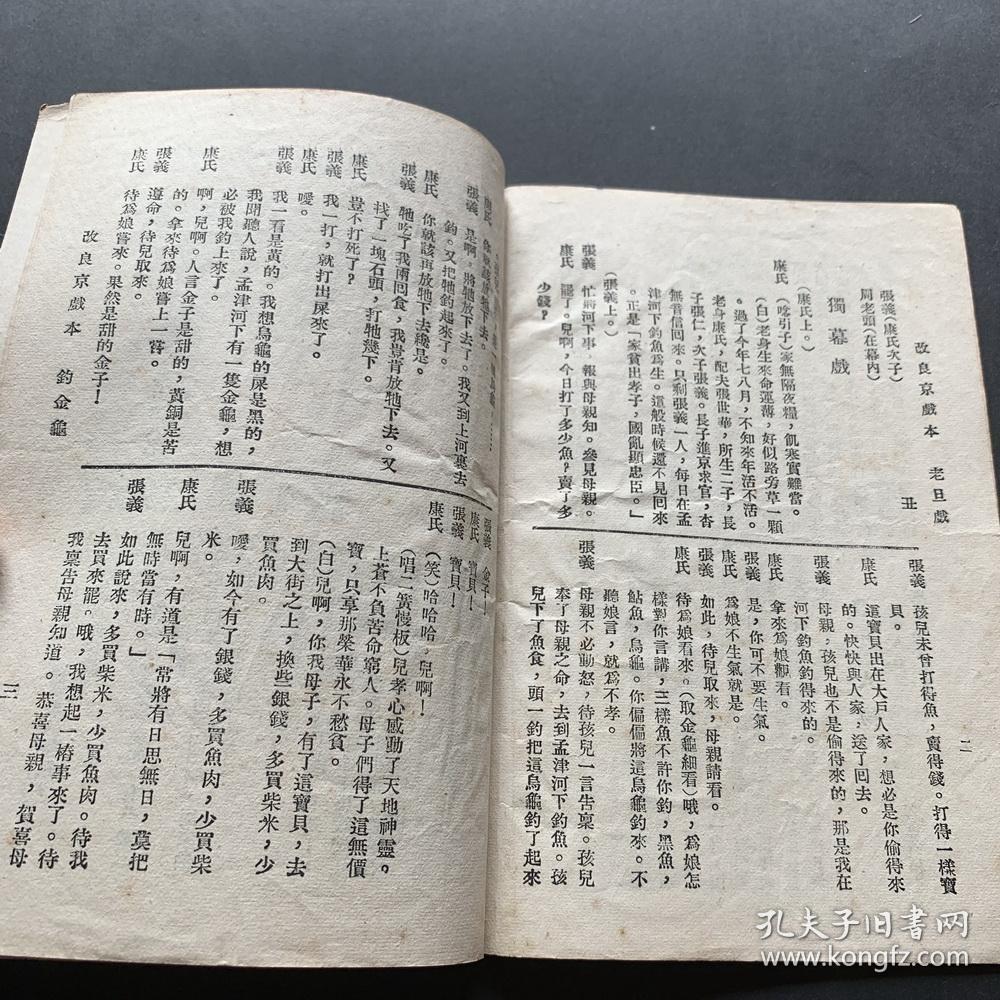 改良京戲本 老旦戲 二
丑
張義(康氏次子)
周老頭(在幕内)
獨幕戲
(康氏上。)
康氏 (唸引子)家無隔夜糧,飢寒實難當。
(白)老身生來命運薄,好似路旁草一顆
。過了今年七八月,不知來年活不活。
老身康氏,配夫張世華,所生二子,長
子張仁,次子張義。長子進京求官,杳
無音信回來。只剩張義一人,每日在孟
津河下釣魚爲生。這般時候還不見回來
。正是「家貧出孝子,國亂顯忠臣。」
(張義上。)
張義 忙將河下事,報與母親知。參見母親。
康氏 罷了。兒啊,今日打了多少魚?賣了多
少錢?
張義 孩兒未曾打得魚,賣得錢。打得一樣寶
貝。
康氏 這寶貝出在大戶人家,想必是你偷得來
的。快快與人家,送了回去。
張義 母親,孩兒也不是偷得來的,那是我在
河下釣魚釣得來的。
康氏 拿來爲娘觀看。
張義 是,你可不要生氣。
康氏 爲娘不生氣就是。
張義 如此,待兒取來,母親請看。
康氏 待爲娘看來。(取金龜細看)哦,爲娘怎
樣對你言講,三樣魚不許你釣,黑魚,
鮎魚,烏龜。你偏偏將這烏龜釣來。不
聽娘言,就爲不孝。
張義 母親不必動怒,待孩兒一言告稟。孩兒
奉了母親之命,去到孟津河下釣魚。孩
兒下了魚食,頭一釣把這烏龜釣了起來
康氏
張義 是啊,將牠放下去了。我又到上河裏去
釣。又把牠釣起來了。
康氏 你就該再放牠下去纔是。
張義 牠吃了我兩回食,我豈肯放牠下去。又
找了一塊石頭,打牠幾下。
康氏 豈不打死了?
張義 我一打,就打出屎來了。
康氏 噯。
張義 我一看是黃的。我想烏龜的屎是黑的,
我聞聽人說,孟津河下有一隻金龜,想
必被我釣上來了。
康氏 啊,兒啊。人言金子是甜的,黃銅是苦
的。拿來待爲娘嘗上一嘗。
張義 遵命,待兒取來。
康氏 待爲娘嘗來。果然是甜的金子!
改良京戲本 釣金龜 三
張義 金子!
康氏 寶貝!
張義 寶貝!
康氏 (笑)哈哈哈,兒啊!
(唱二簧慢板)兒孝心感動了天地神靈。
上蒼不負苦命窮人。母子們得了這無價
寶,只享那榮華永不愁貧。
(白)兒啊,你我母子,有了這寶貝,去
到大街之上,換些銀錢,多買柴米,少
買魚肉。
張義 噯,如今有了銀錢,多買魚肉,少買柴
米。
康氏 兒啊,有道是「常將有日思無日,莫把
無時當有時。」
張義 如此說來,多買柴米,少買魚肉。待我
去買來罷。哦,我想起一樁事來了。待
我稟告母親知道。恭喜母親,賀喜母
孔夫子旧书网
www.kongfz.com